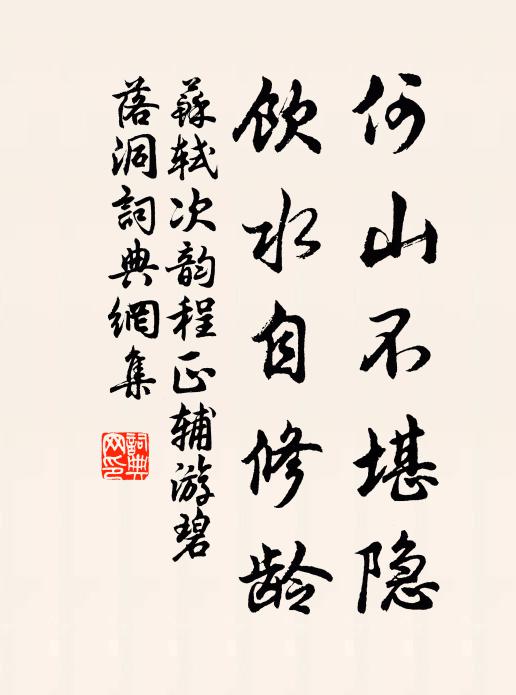 何山不堪隐
饮水自修龄
蘇轼次韵程正辅游碧
落洞詞典網集
詞典网印